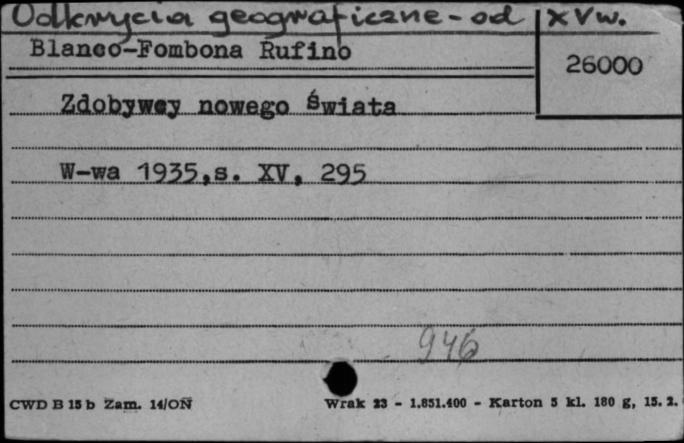 Odkrycia geograficzne - od XV w.
Blanco-Fombona Rufino
26000
Zdobywcy nowego Świata
W-wa 1935,s. XV, 295
946
CWD B 15 b Zam. 14/ON Wrak 23 - 1.851.400 - Karton 5 kl. 180 g, 15. 2.